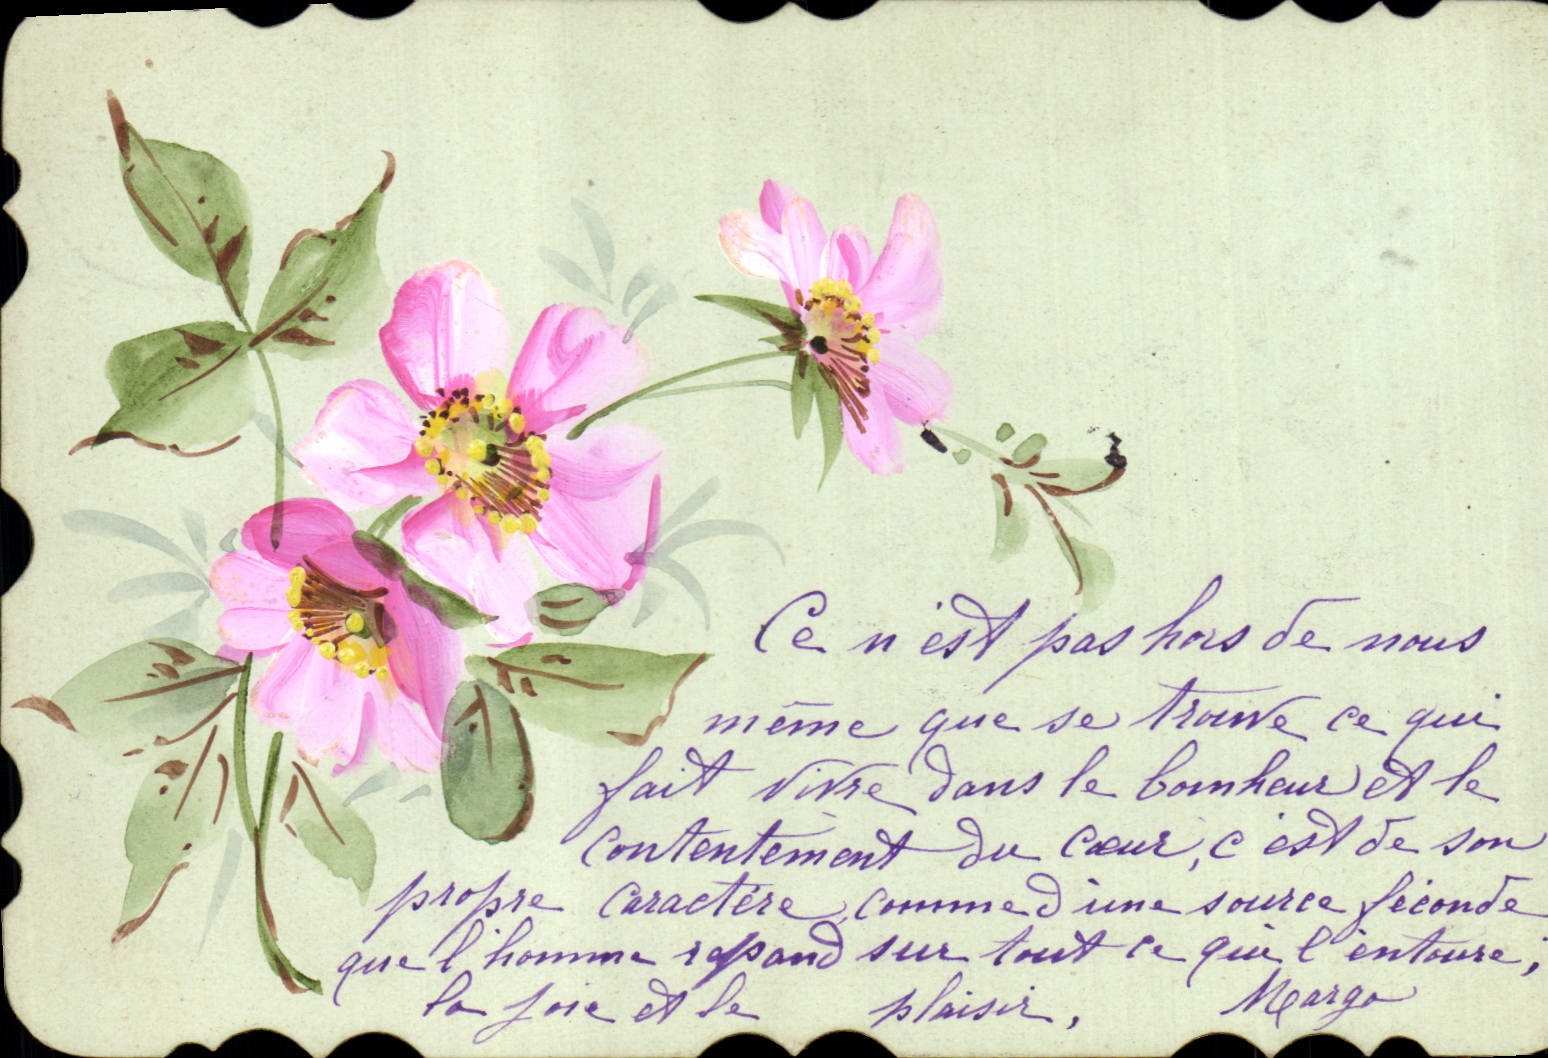 Ce n'est pas hors de nous
même que se trouve ce qui
fait vivre dans le bonheur et le
contentement du cœur, c'est de son
propre caractère, comme d'une source féconde
que l'homme répand sur tout ce qui l'entoure,
la joie et le plaisir, Margo